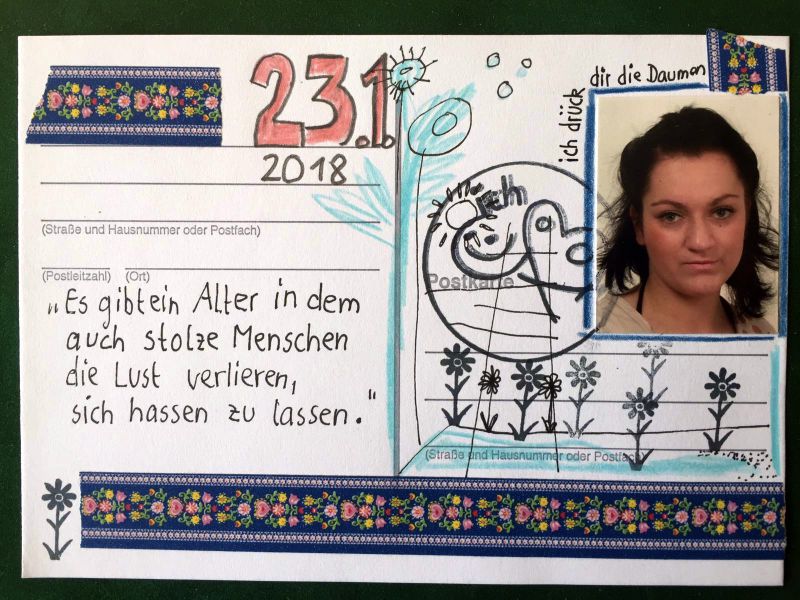 23.1.
2018
(Straße und Hausnummer oder Postfach)
(Postleitzahl) (Ort)
„Es gibt ein Alter in dem
auch stolze Menschen
die Lust verlieren,
sich hassen zu lassen."
ich drück
dir die Daumen
Postkarte
(Straße und Hausnummer oder Postfach